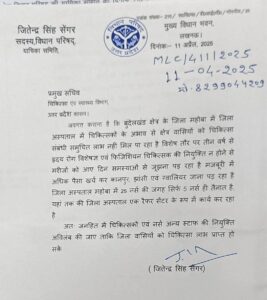 जितेन्द्र सिंह सेंगर
सदस्य, विधान परिषद्
याचिका समिति,
मुख्य विधान भवन,
लखनऊ।
दिनांक:- 11 अप्रैल, 2025
MLC/411/2025
11-04-2025
मो० 8299044209
प्रमुख सचिव
चिकित्सा एवं स्वास्थ्य विभाग,
उत्तर प्रदेश शासन।
अवगत कराना है कि बुंदेलखंड क्षेत्र के जिला महोबा में जिला
अस्पताल में चिकित्सकों के अभाव से क्षेत्र वासियों को चिकित्सा
संबंधी समुचित लाभ नहीं मिल पा रहा है विशेष तौर पर तीन वर्ष से
हृदय रोग विशेषज्ञ एवं फिजिशियन चिकित्सक की नियुक्ति न होने से
मरीजों को आए दिन समस्याओं से जूझना पड़ रहा है मजबूरी में
अधिक पैसा खर्च कर कानपुर, झांसी एवं ग्वालियर जाना पड़ रहा है
जिला अस्पताल महोबा में 25 नर्स की जगह सिर्फ 5 नर्स ही तैनात है।
यहां तक की जिला अस्पताल एक रैफर सेंटर के रूप में कार्य कर रहा
है
अतः जनहित में चिकित्सकों एवं नर्स अन्य स्टाफ की नियुक्ति
अविलंब की जाए ताकि जिला वासियों को चिकित्सा लाभ प्राप्त हो
सके
( जितेन्द्र सिंह सेंगर)